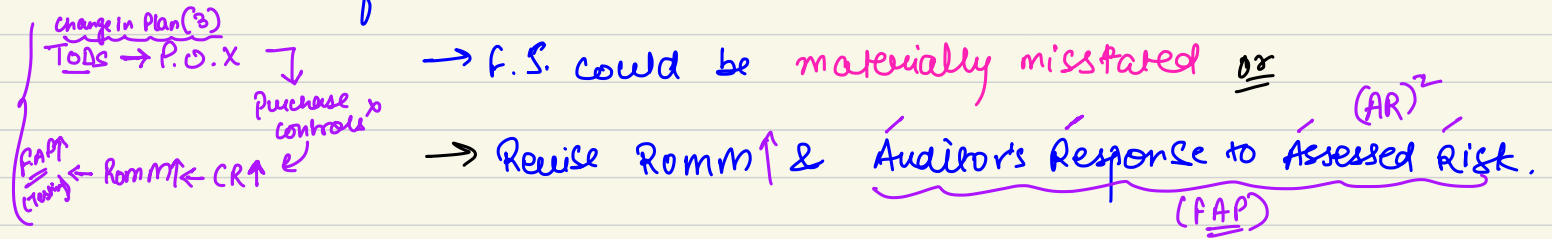 Change in Plan (3)
TODs → P.O.X
Purchase
controls x
FAP↑ ← RoMM↑ ← CR↑
(Testing)
→ F.S. could be materially misstated or
(AR)²
→ Revise RoMM↑ & Auditor's Response to Assessed Risk.
(FAP)